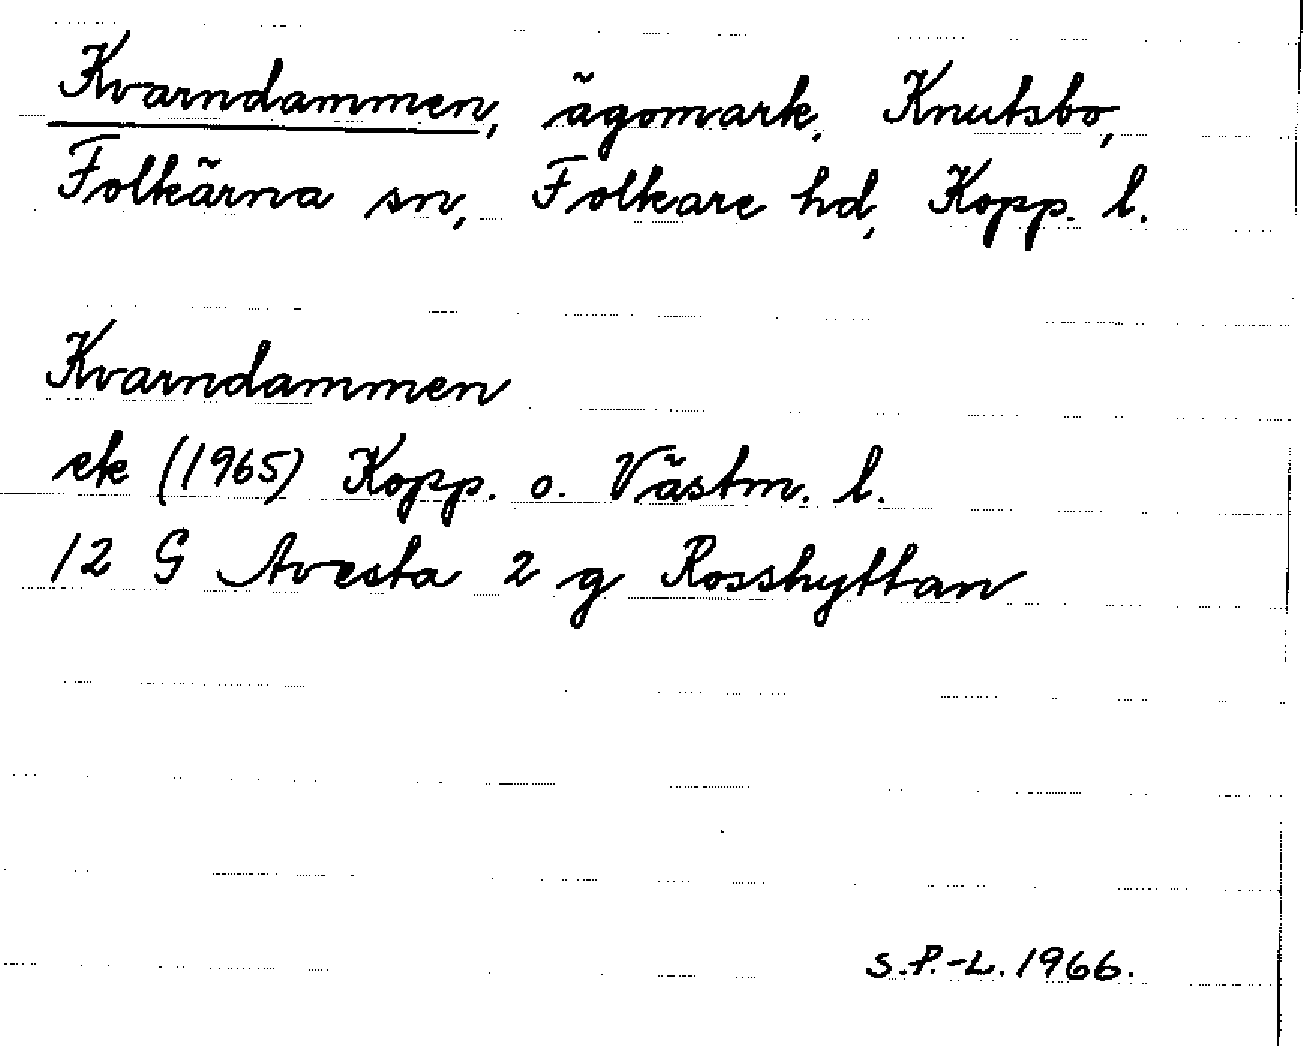 Kvarndammen, ägomark, Knutsbo,
Folkärna sn, Folkare hd, Kopp. l.
Kvarndammen
ek (1965) Kopp. o. Västm. l.
12 G Avesta 2 g Rosshyttan
S.P.-L. 1966.